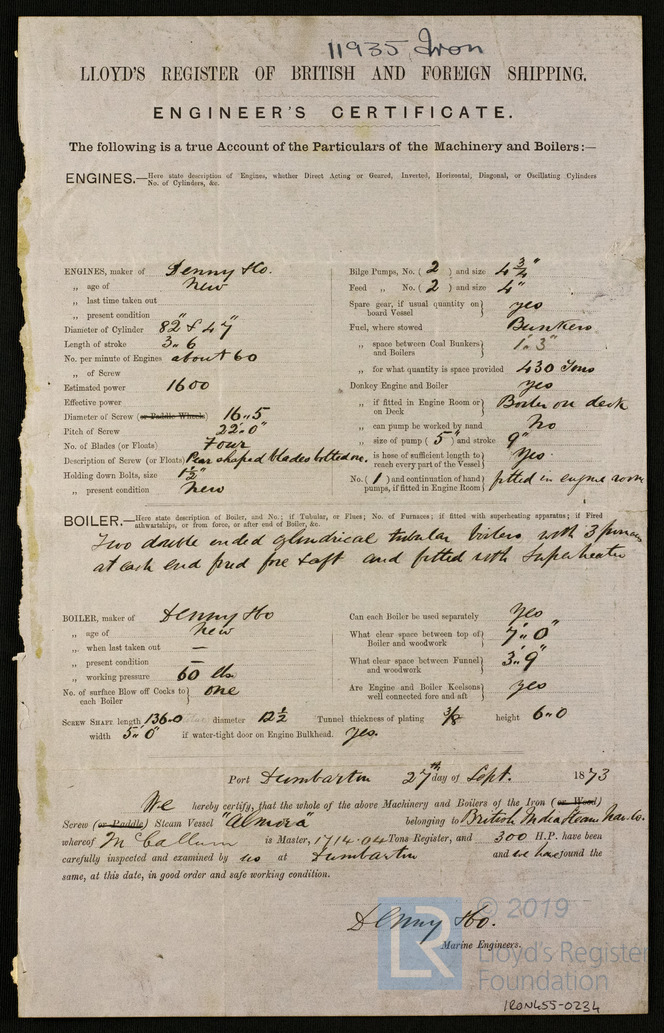 11935 Iron
LLOYD'S REGISTER OF BRITISH AND FOREIGN SHIPPING.
ENGINEER'S CERTIFICATE.
The following is a true Account of the Particulars of the Machinery and Boilers:—
ENGINES.—Here state description of Engines, whether Direct Acting or Geared, Inverted, Horizontal, Diagonal, or Oscillating Cylinders
No. of Cylinders, &c.
ENGINES, maker of Denny & Co.
„ age of New
„ last time taken out
„ present condition
Diameter of Cylinder 82" & 47"
Length of stroke 3"6
No. per minute of Engines about 60
„ of Screw
Estimated power 1600
Effective power
Diameter of Screw (or Paddle Wheels) 16"5
Pitch of Screw 22"0"
No. of Blades (or Floats) Four
Description of Screw (or Floats) Pear shaped blades bolted on.
Holding down Bolts, size 1½"
„ present condition New
Bilge Pumps, No. ( 2 ) and size 4¾"
Feed „ No. ( 2 ) and size 4"
Spare gear, if usual quantity on
board Vessel } yes
Fuel, where stowed Bunkers
„ space between Coal Bunkers
and Boilers } 1" 3"
„ for what quantity is space provided 430 Tons
Donkey Engine and Boiler yes
„ if fitted in Engine Room or
on Deck } Boiler on deck
„ can pump be worked by hand No
„ size of pump ( 5" ) and stroke 9"
„ is hose of sufficient length to
reach every part of the Vessel } Yes
No. ( 1 ) and continuation of hand
pumps, if fitted in Engine Room } fitted in engine room
BOILER.—Here state description of Boiler, and No.; if Tubular, or Flues; No. of Furnaces; if fitted with superheating apparatus; if Fired
athwartships, or from force, or after end of Boiler, &c.
Two double ended cylindrical tubular boilers with 3 furnaces
at each end fired fore & aft and fitted with Superheater
BOILER, maker of Denny & Co
„ age of New
„ when last taken out —
„ present condition —
„ working pressure 60 lbs.
No. of surface Blow off Cocks to
each Boiler } one
Can each Boiler be used separately Yes
What clear space between top of
Boiler and woodwork } 7" 0"
What clear space between Funnel
and woodwork } 3" 9"
Are Engine and Boiler Keelsons
well connected fore and aft } yes
SCREW SHAFT length 136-0 diameter 12½ Tunnel thickness of plating 3/8 height 6"0
width 5" 0" if water-tight door on Engine Bulkhead. Yes.
Port Dumbarton 27th day of Sept. 1873
We hereby certify, that the whole of the above Machinery and Boilers of the Iron (or Wood)
Screw (or Paddle) Steam Vessel "Almora" belonging to British India Steam Nav. Co.
whereof McCallum is Master, 1714.04 Tons Register, and 300 H.P. have been
carefully inspected and examined by us at Dumbarton and we have found the
same, at this date, in good order and safe working condition.
Denny & Co.
Marine Engineers.
© 2019
LR
Lloyd's Register
Foundation
IRON455-0234